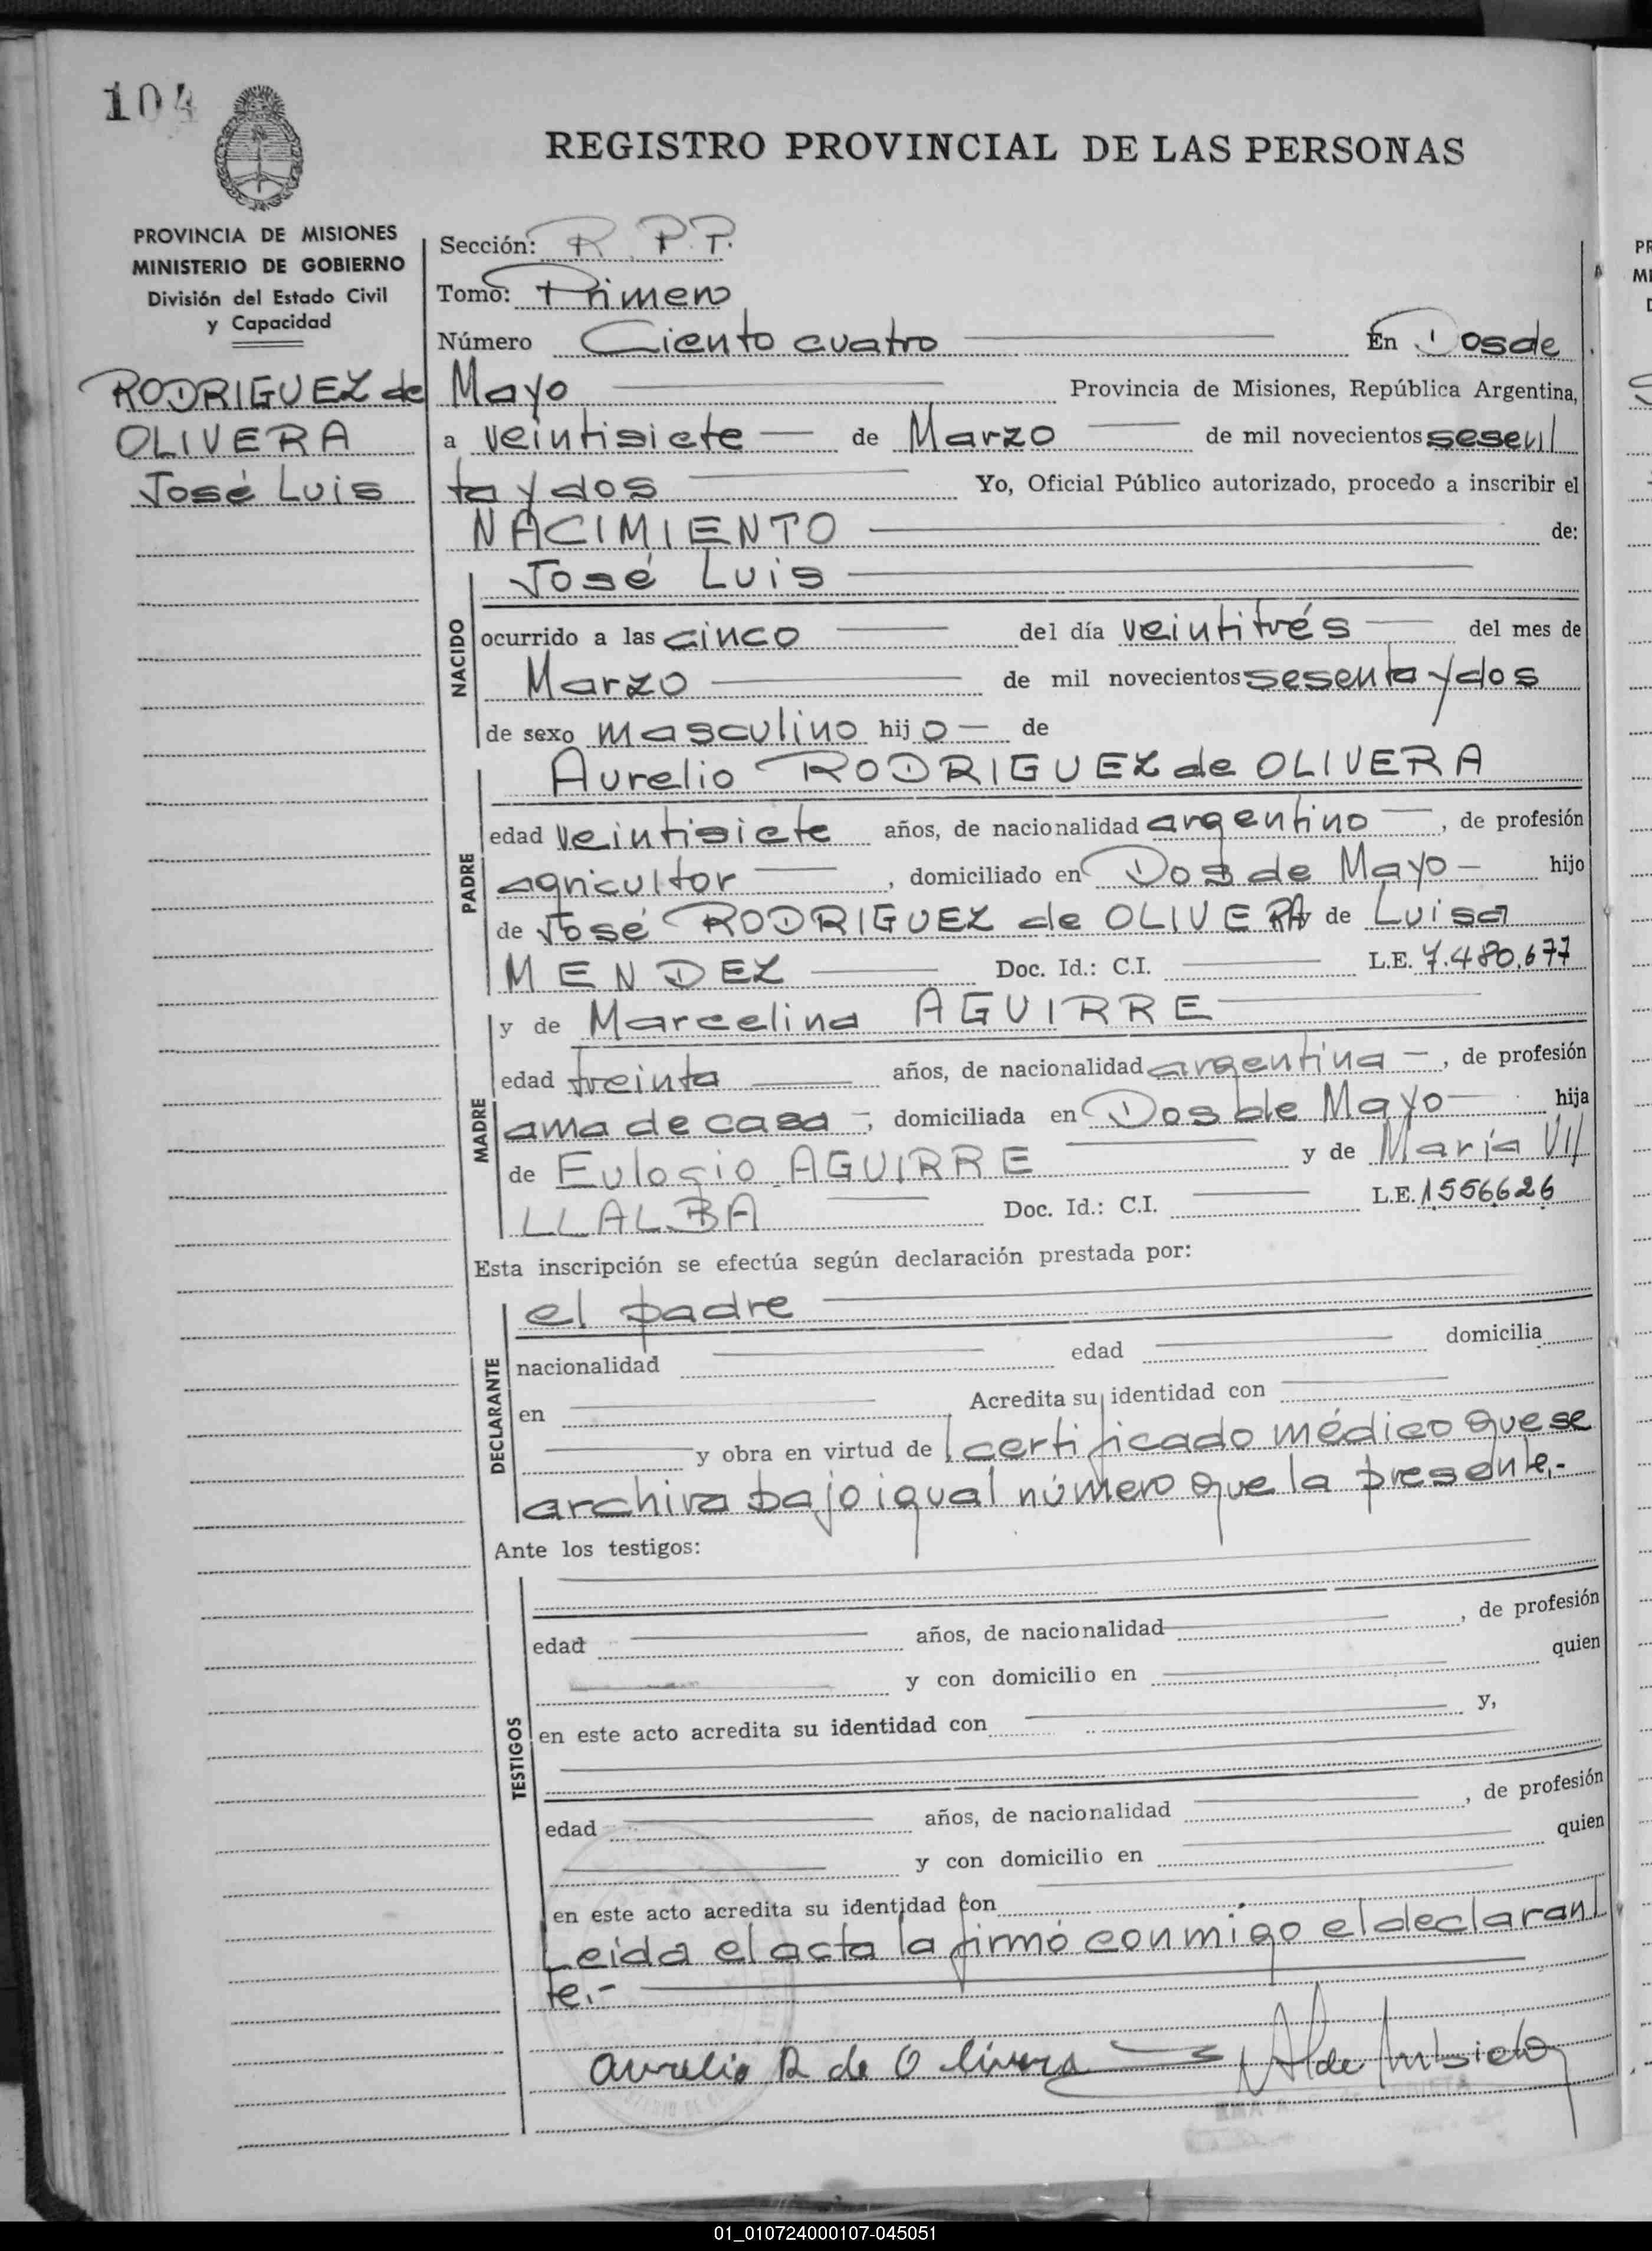 104
REGISTRO PROVINCIAL DE LAS PERSONAS
PROVINCIA DE MISIONES
MINISTERIO DE GOBIERNO
División del Estado Civil
y Capacidad
RODRIGUEZ de
OLIVERA
José Luis
Sección: R. P. P.
Tomo: Primero
Número Ciento cuatro En Dos de
Mayo Provincia de Misiones, República Argentina,
a veintisiete de Marzo de mil novecientos sesen
ta y dos Yo, Oficial Público autorizado, procedo a inscribir el
NACIMIENTO de:
NACIDO
José Luis
ocurrido a las cinco del día veintitrés del mes de
Marzo de mil novecientos sesenta y dos
de sexo masculino hijo de
PADRE
Aurelio RODRIGUEZ de OLIVERA
edad veintisiete años, de nacionalidad argentino, de profesión
agricultor, domiciliado en Dos de Mayo hijo
de José RODRIGUEZ de OLIVERA y de Luisa
MENDEZ Doc. Id.: C.I. L.E. 7.480.677
MADRE
y de Marcelina AGUIRRE
edad treinta años, de nacionalidad argentina, de profesión
ama de casa, domiciliada en Dos de Mayo hija
de Eulogio AGUIRRE y de María VI
LLALBA Doc. Id.: C.I. L.E. 1556626
Esta inscripción se efectúa según declaración prestada por:
DECLARANTE
el padre
nacionalidad edad domicilia
en Acredita su identidad con
y obra en virtud de certificado médico que se
archiva bajo igual número que la presente.-
Ante los testigos:
TESTIGOS
edad años, de nacionalidad , de profesión
y con domicilio en quien
en este acto acredita su identidad con y,
edad años, de nacionalidad , de profesión
y con domicilio en quien
en este acto acredita su identidad con
Leida el acta la firmó conmigo el declaran
te.-
Aurelio R de Olivera
01_010724000107-045051